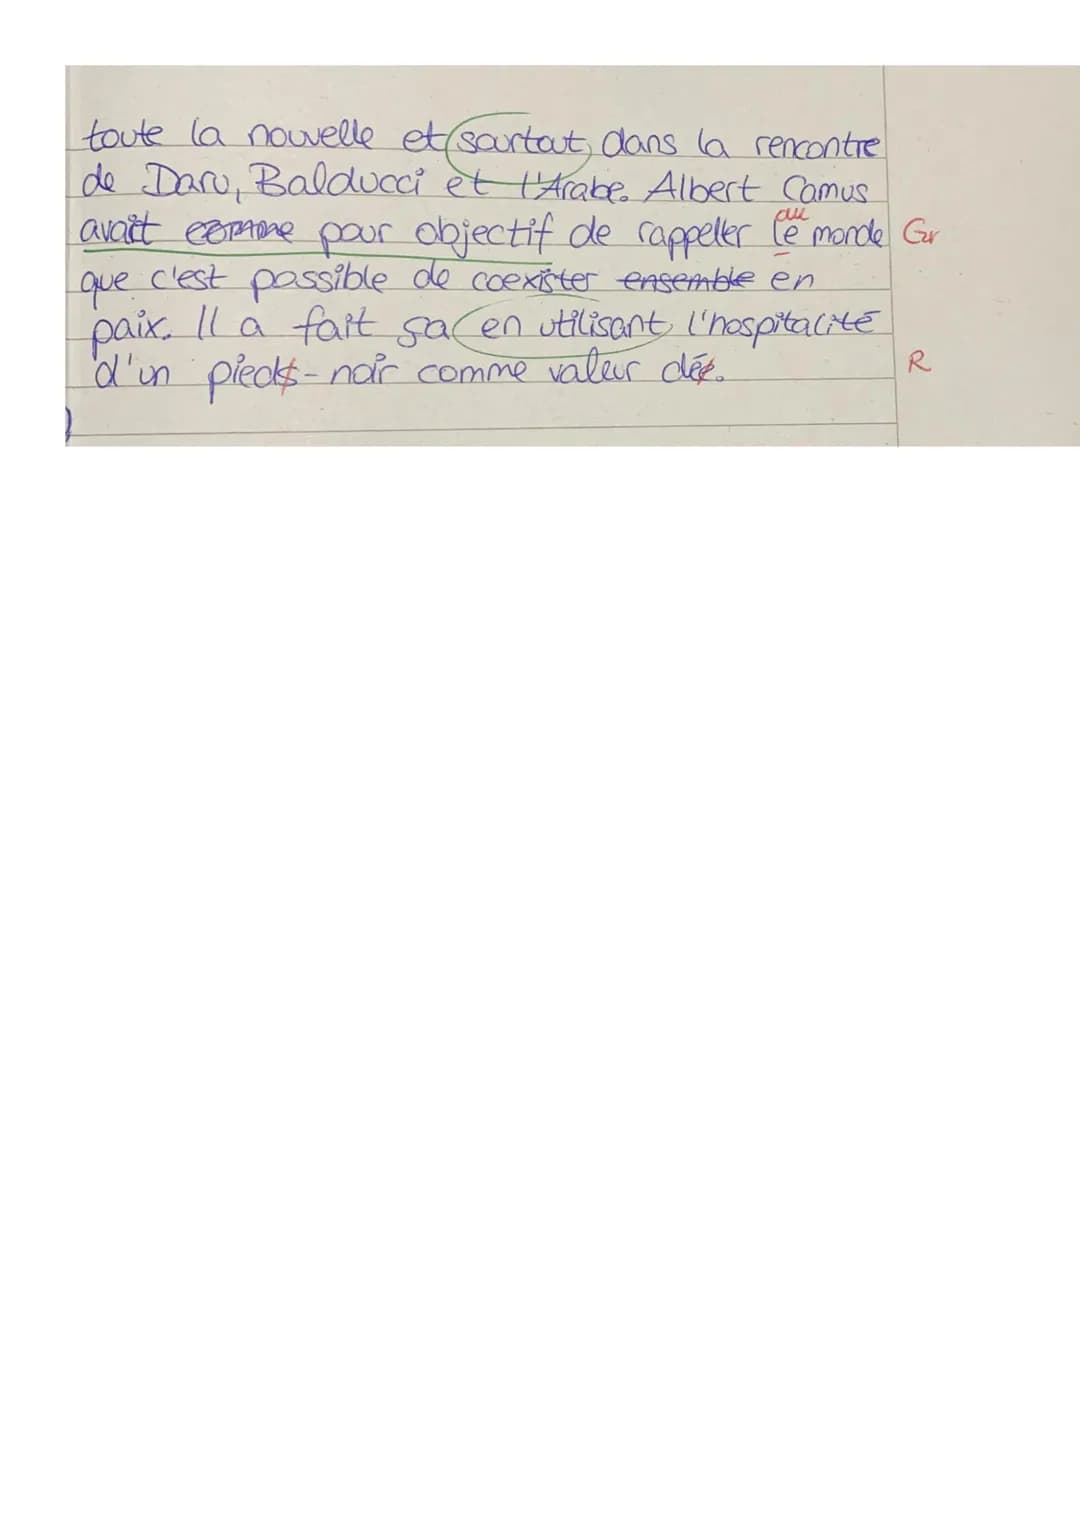 toute la nouvelle et surtout dans la rencontre
de Daru, Balducci et l'Arabe. Albert Camus
avait comme pour objectif de rappeller le monde au Gr
que c'est possible de coexister ensemble en
paix. Il a fait ça en utilisant l'hospitalité
d'un pieds-noir comme valeur clée. R